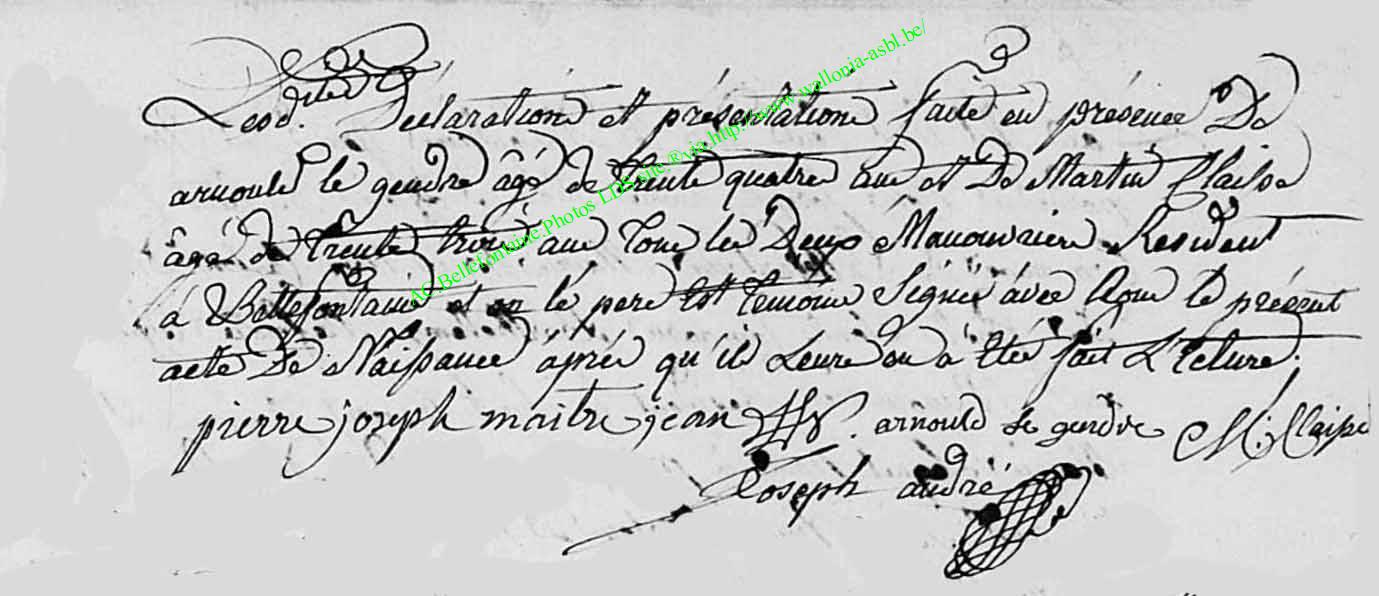 dites
Lesd. Déclarations et présentations faite en présence De
arnould le gendre âgé de trente quatre ans et De Martin Claise
âgé de trente trois ans tous les Deux Manouvriers Resident
à Bellefontaine et le pere est temoins Signés avec nous le présent
acte De Naissance áprés qu'il Leurs en à été fait L'ecture.
pierre joseph maitrejean arnould le gendre M. Claise
Joseph andré
AC Bellefontaine Photos LDS site ® via http://www.wallonia-asbl.be/